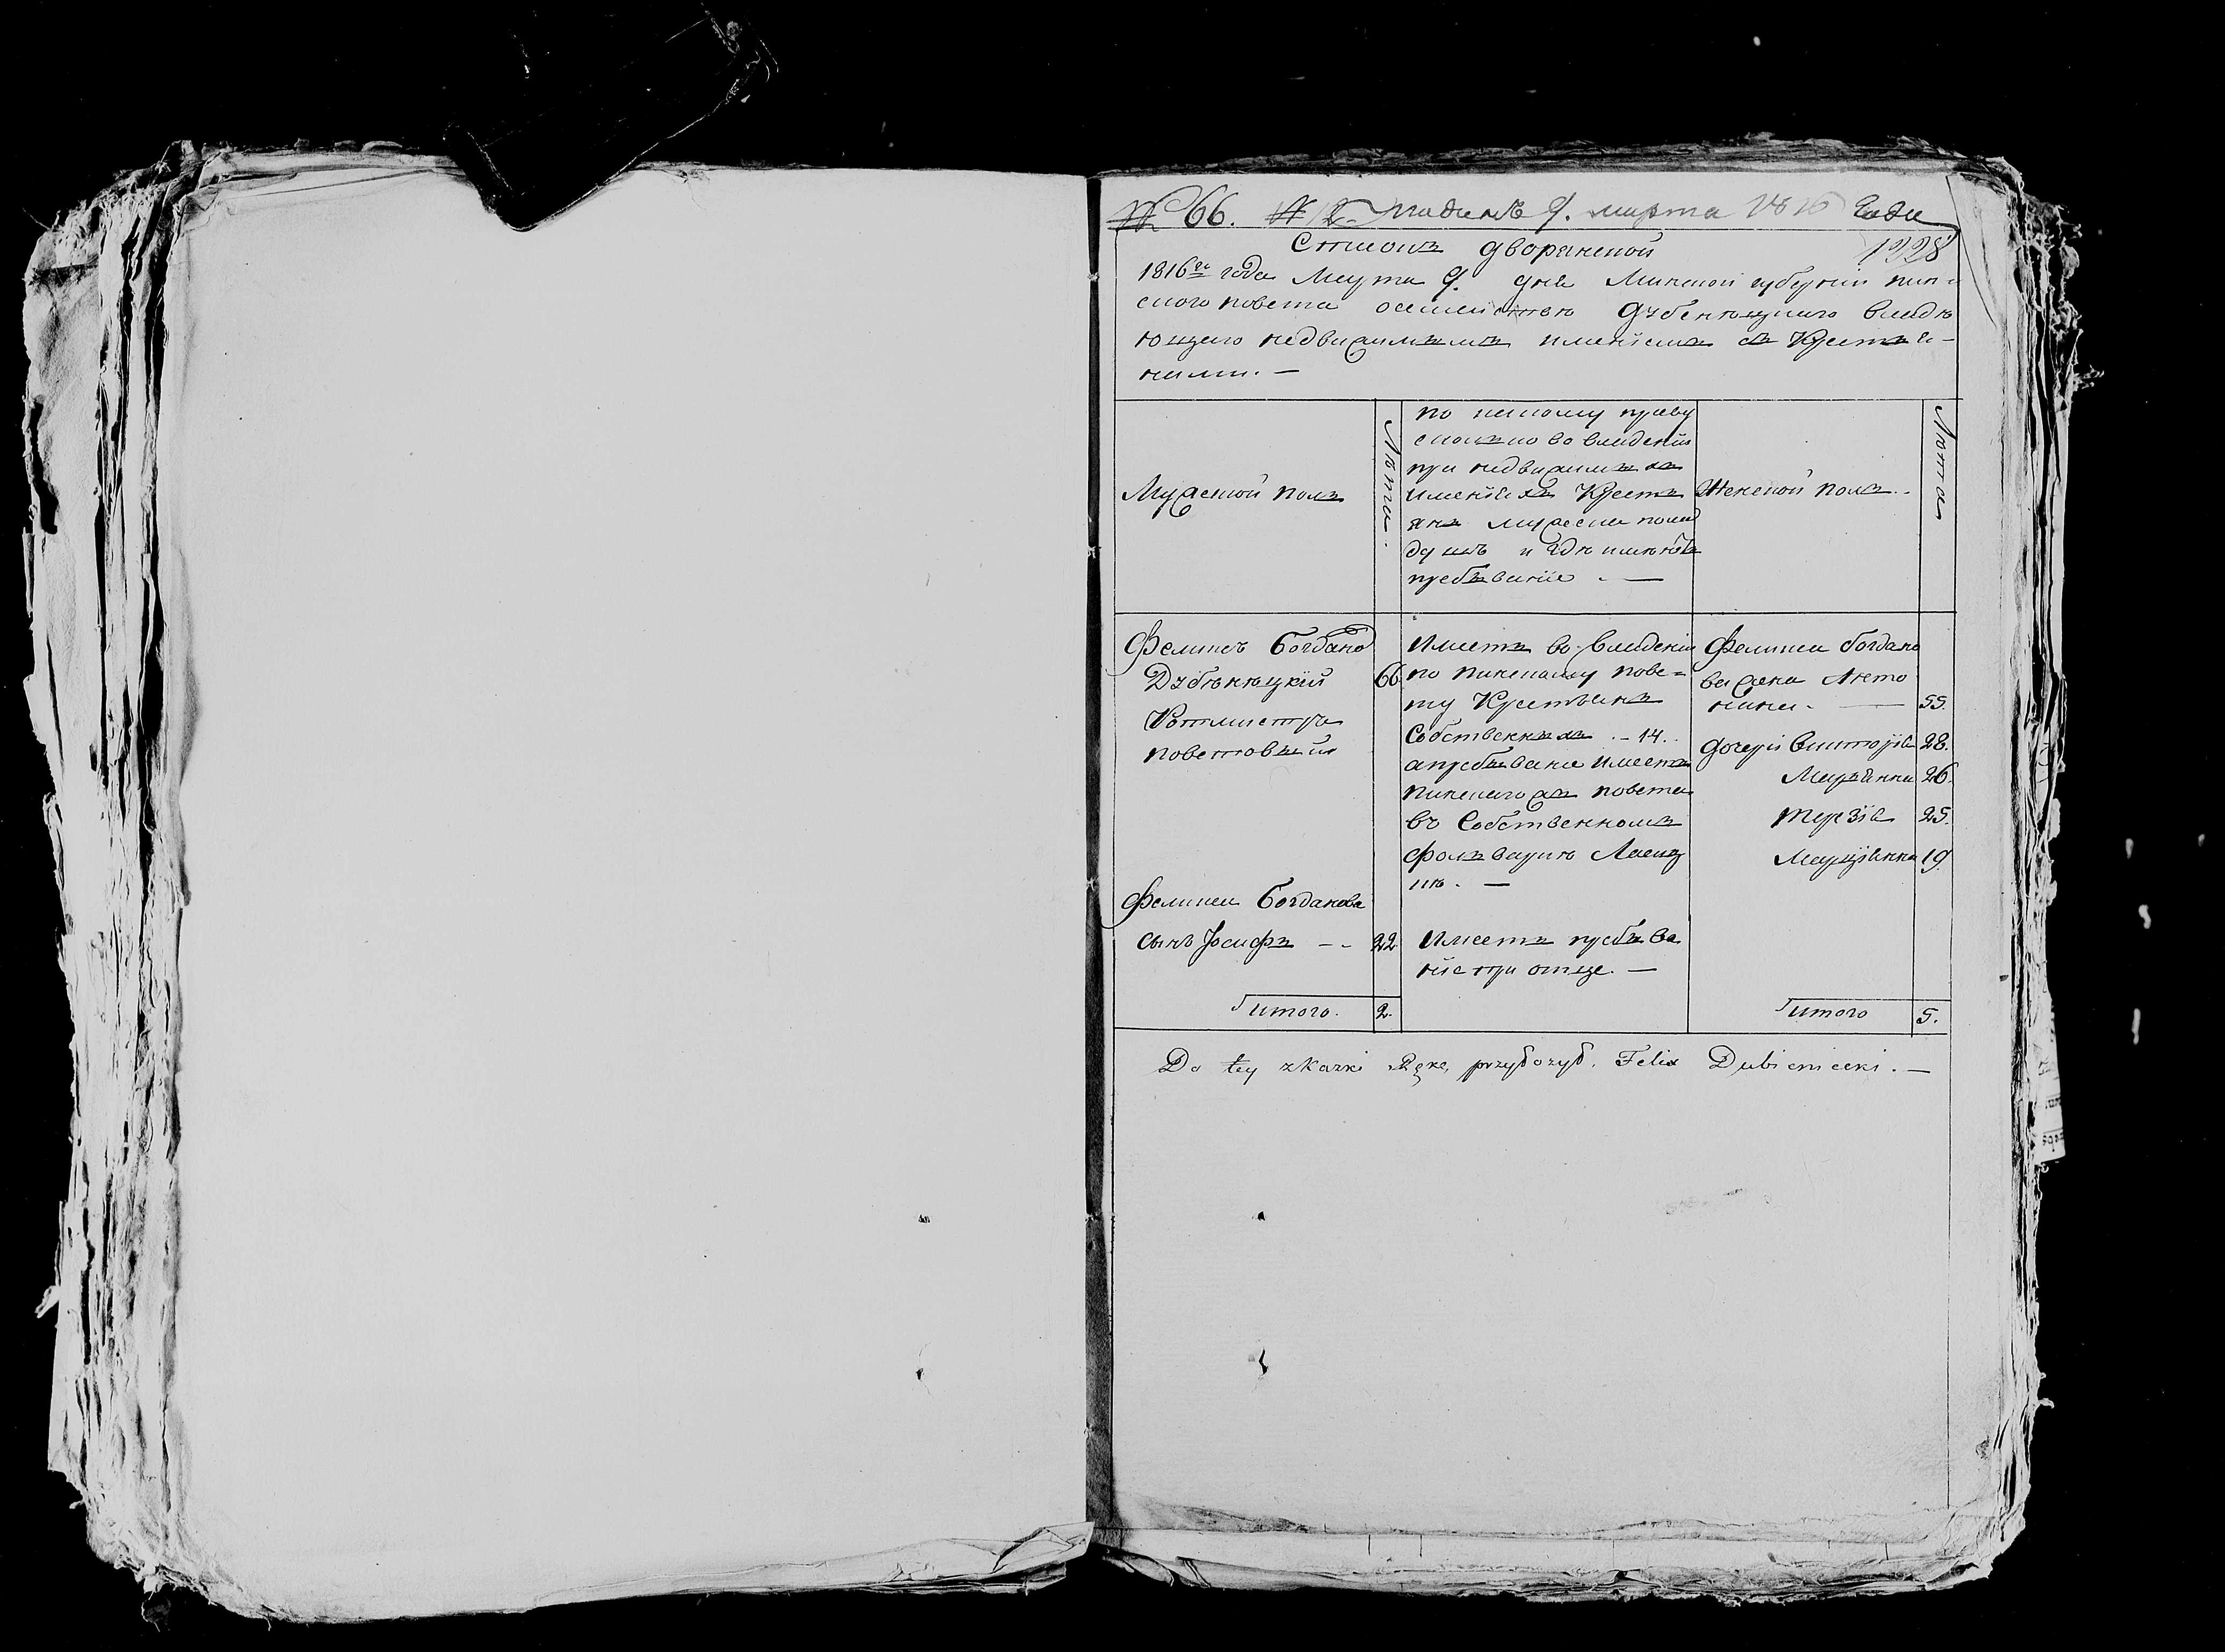 № 66. № 12. Подана 9. марта 1816 года
Списокъ дворянской
1228
1816го года Марта 9. дня Минской губерніи пин-
ского повета осемействе Дубенецкаго владе
ющего недвижимымъ имениемъ съ Крестья-
нами. —
Мужеской полъ
Лѣта.
по какому праву
сколько во владеніи
при недвижимыхъ
именіяхъ Крестъ
янъ мужеска пола
душъ и где имеютъ
пребываніе . —
Женской полъ..
Лета
Феликсъ Богдано
Дубѣнецкій 66
Ротмистръ
поветовый
Имеетъ во владеніи
по пинскому пове=
ту Крестьянъ
Собственныхъ . – 14.
а пребыванiе имеетъ
пинскагожъ повета
въ Собственномъ
фольварке
Феликса Богдано
ва жена Анто
нина. — 55.
дочери Викторія 28.
Маріянна 26.
Терезіа 25.
Марціянна 19
Феликса Богданова
сынъ Іосифъ – – 22
Имеетъ пребыва
ніе при отце. —
Итого. 2.
Итого 5.
Do tey zkazki Rękę przyłożył. Felix Dubieniecki. —